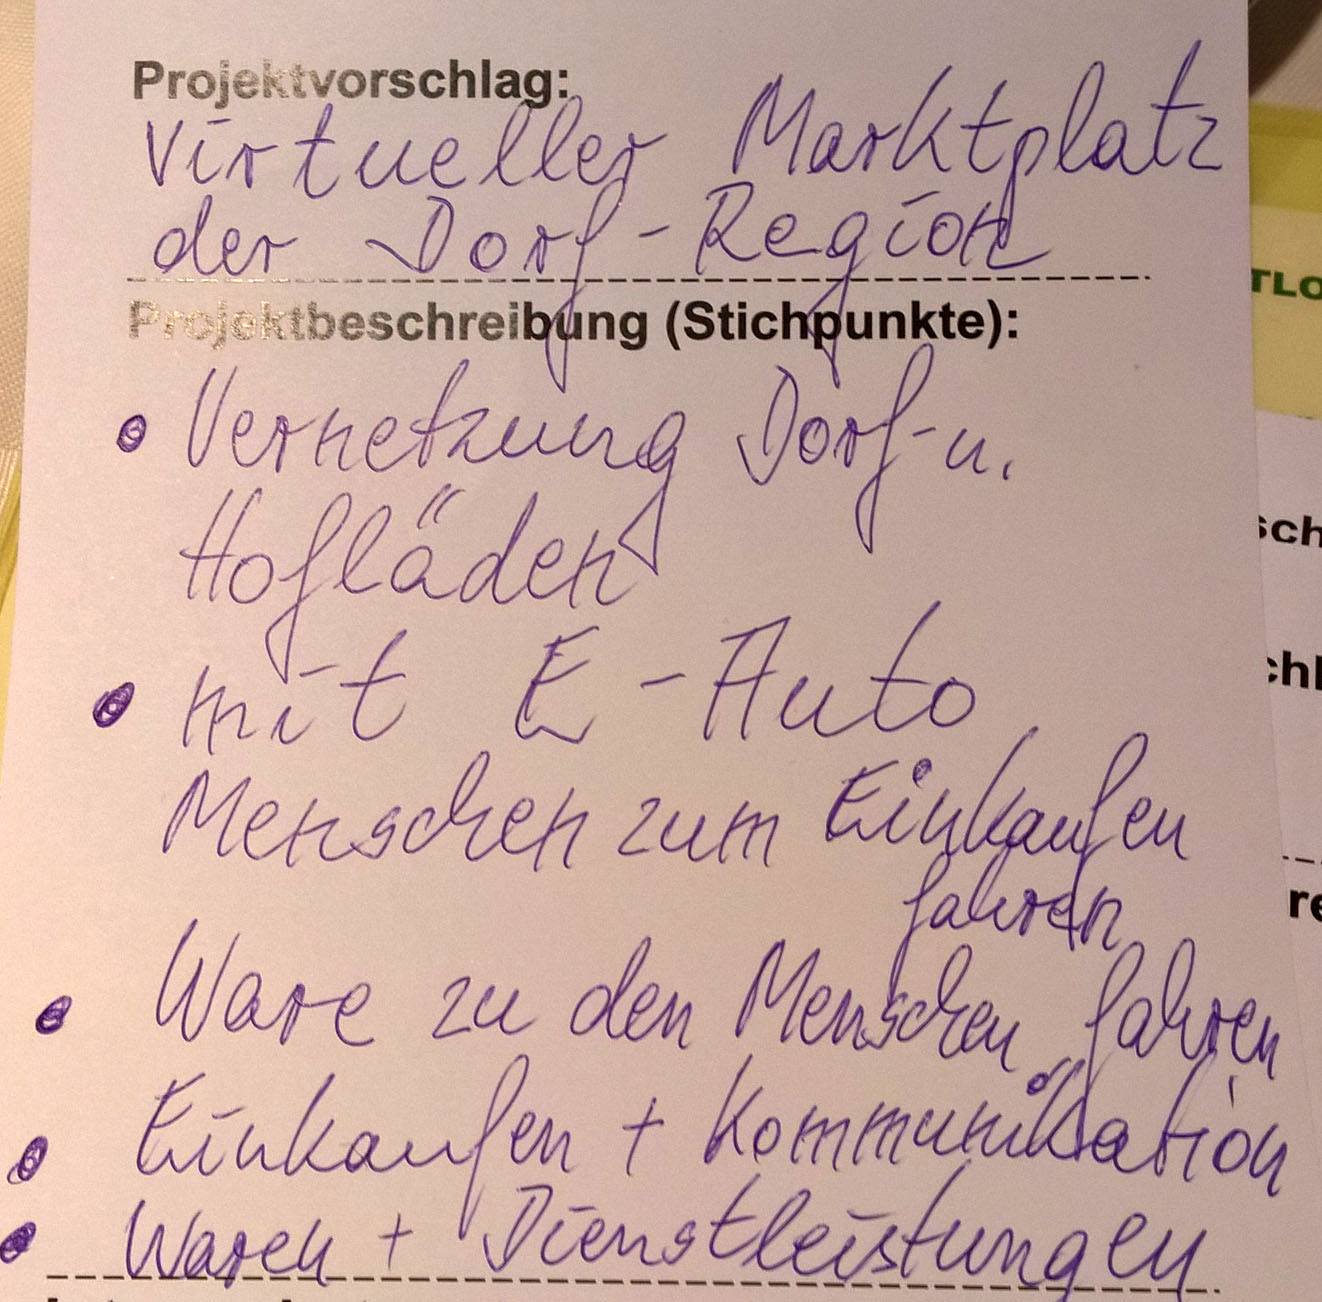 Projektvorschlag:
Virtueller Marktplatz
der Dorf-Region
Projektbeschreibung (Stichpunkte):
• Vernetzung Dorf- u.
Hofläden
• mit E-Auto
Menschen zum Einkaufen
fahren
• Ware zu den Menschen fahren
• Einkaufen + Kommunikation
• Waren + Dienstleistungen
TLO
sch
chl
re